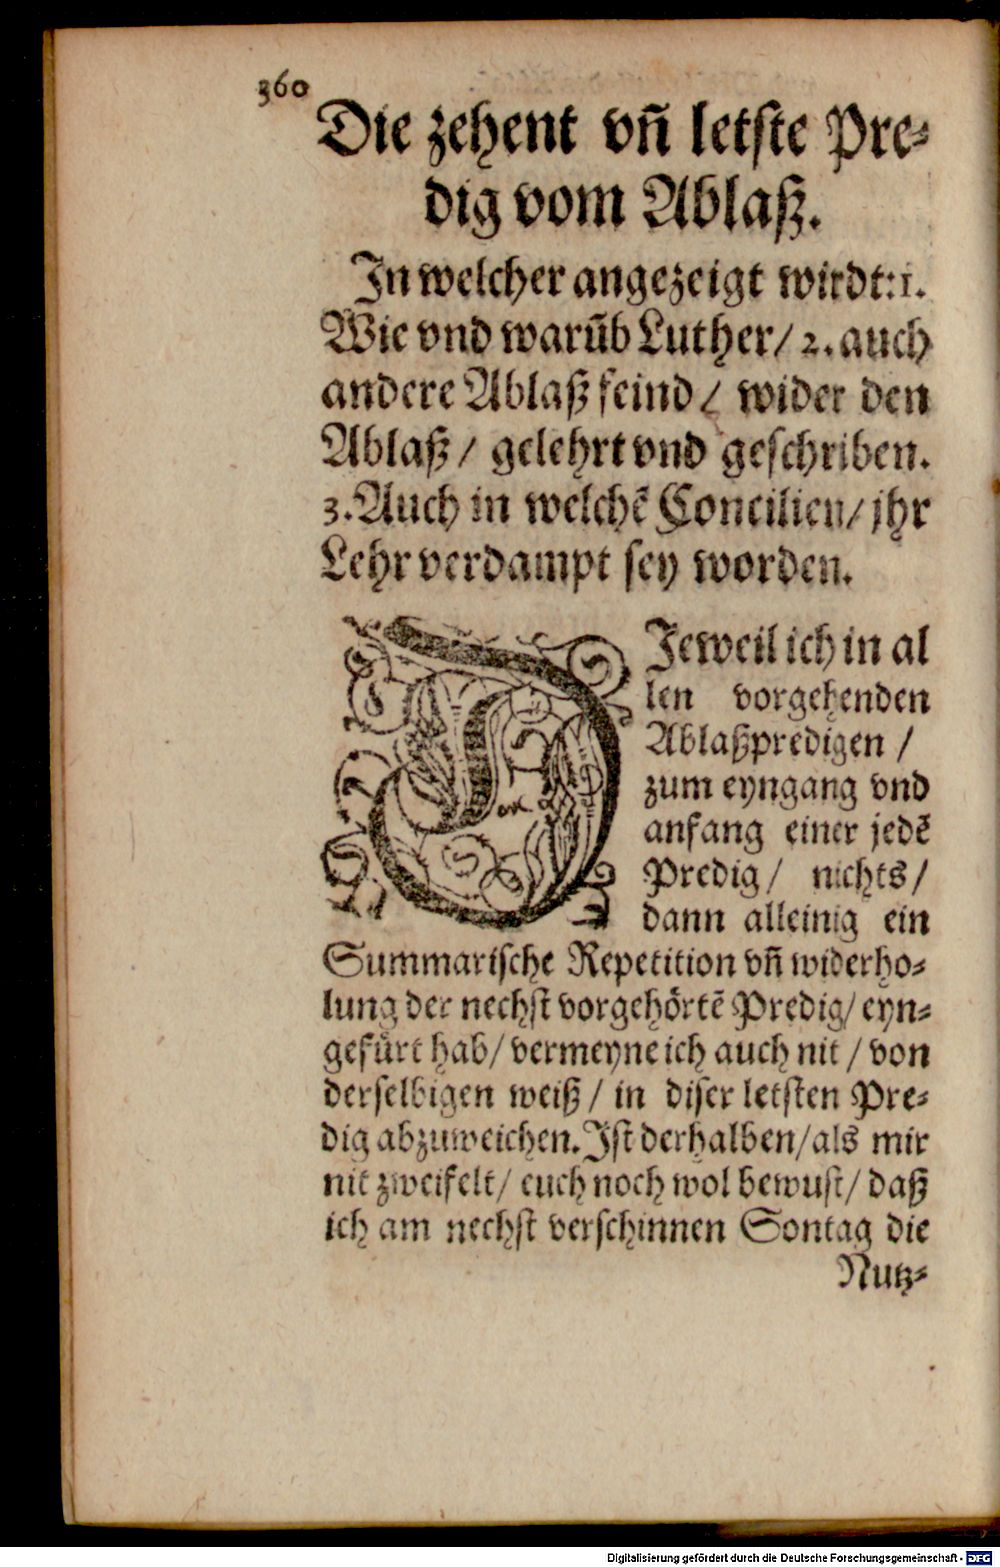 360
Die zehent vñ letste Pre⸗
dig vom Ablaß.
In welcher angezeigt wirdt: 1.
Wie vnd warũb Luther / 2. auch
andere Ablaß feind / wider den
Ablaß / gelehrt vnd geschriben.
3. Auch in welchẽ Concilien / jhr
Lehr verdampt sey worden.
DJeweil ich in al
len vorgehenden
Ablaßpredigen /
zum eyngang vnd
anfang einer jedẽ
Predig / nichts /
dann alleinig ein
Summarische Repetition vñ widerho⸗
lung der nechst vorgehörtẽ Predig / eyn⸗
gefürt hab / vermeyne ich auch nit / von
derselbigen weiß / in diser letsten Pre⸗
dig abzuweichen. Ist derhalben / als mir
nit zweifelt / euch noch wol bewust / daß
ich am nechst verschinnen Sontag die
Nutz⸗
Digitalisierung gefördert durch die Deutsche Forschungsgemeinschaft - DFG